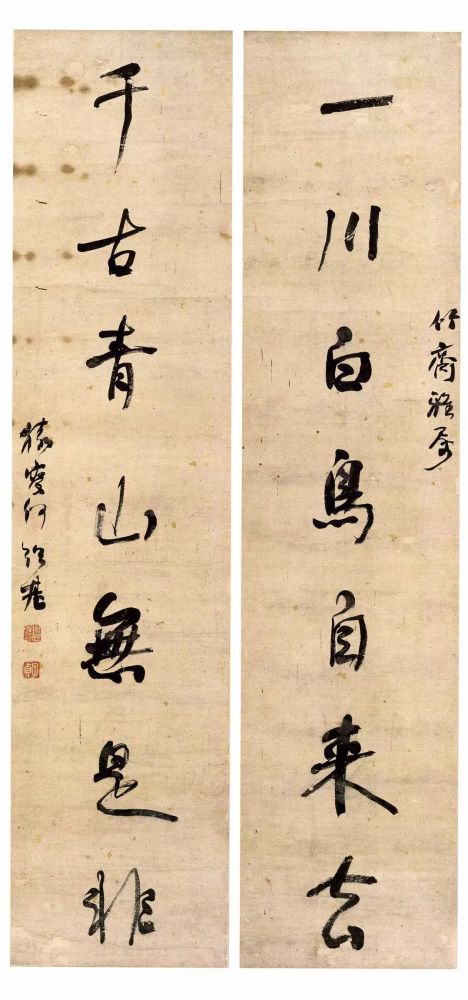 竹齋雅屬
一川白鳥自来去
千古青山無是非
猨叟何紹基